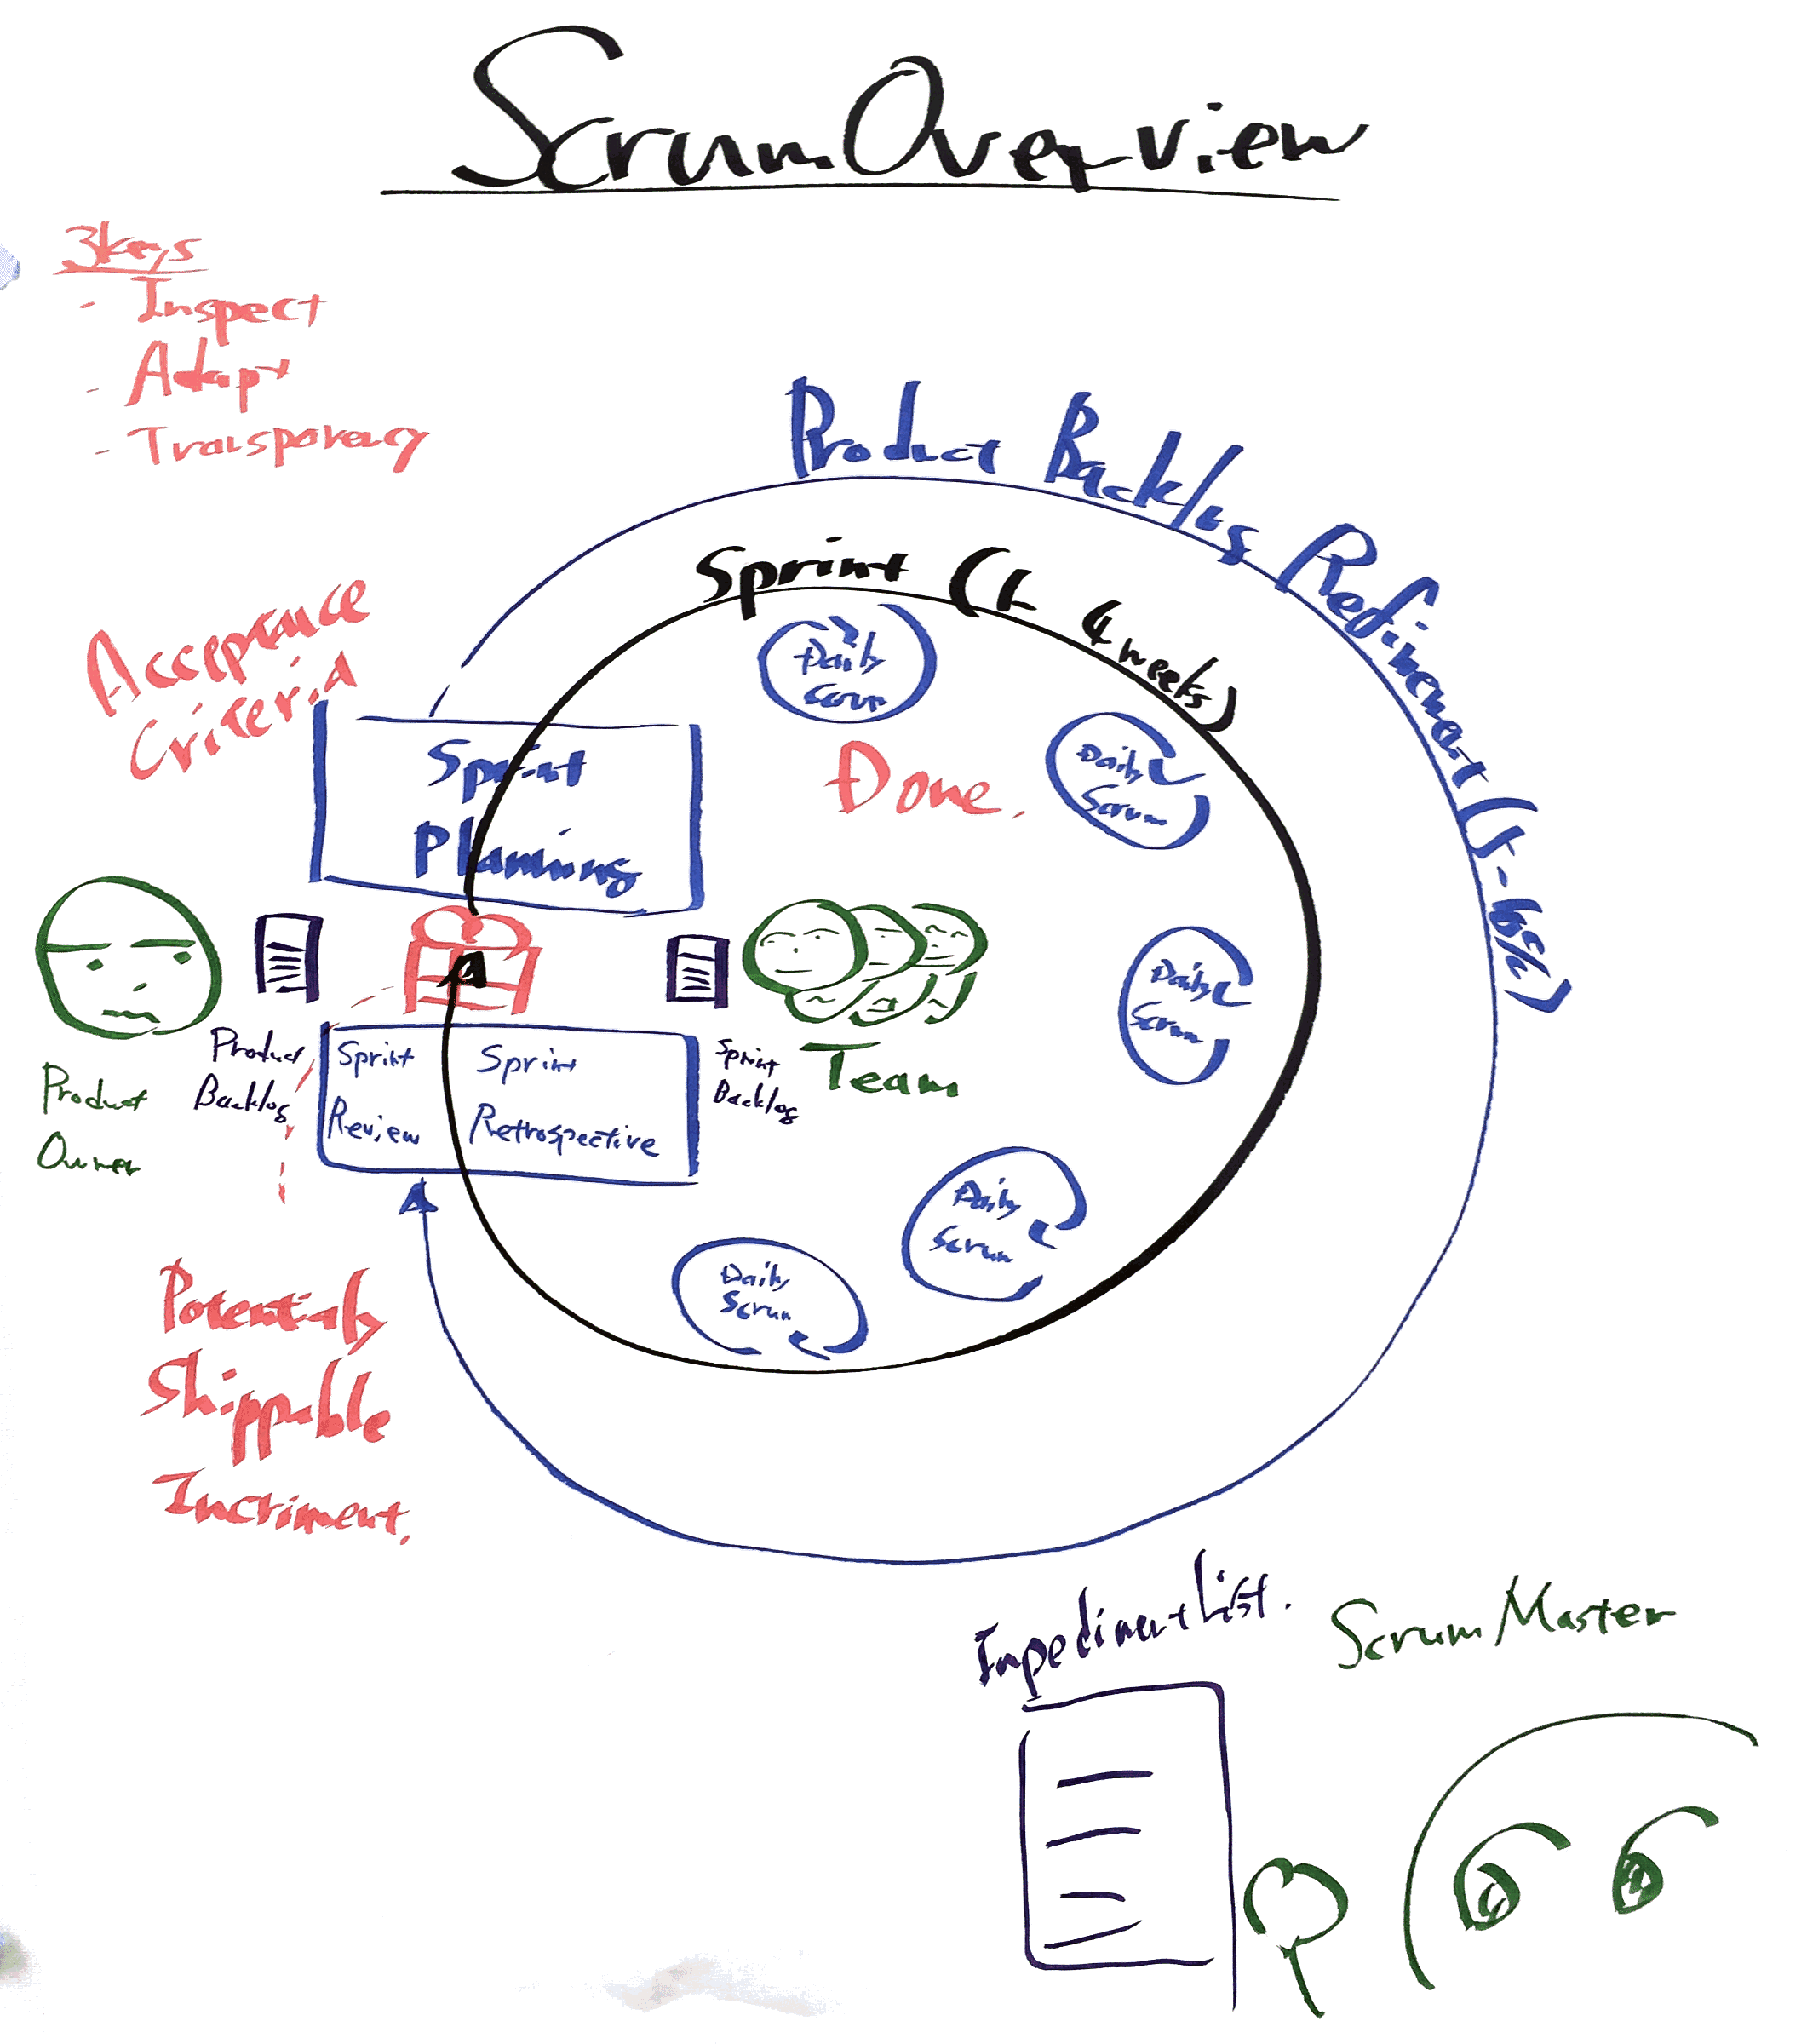 Scrum Overview
3keys
- Inspect
- Adapt
- Transparency
Product Backlog Refinement (5-10%)
Sprint (1-4weeks)
Acceptance
Criteria
Daily
Scrum
Sprint
Planning
Done.
Daily
Scrum
Daily
Scrum
Product
Owner
Product
Backlog
Sprint
Review
Sprint
Retrospective
Sprint
Backlog
Team
Daily
Scrum
Daily
Scrum
Potentialy
Shippable
Incriment.
Impediment List.
Scrum Master